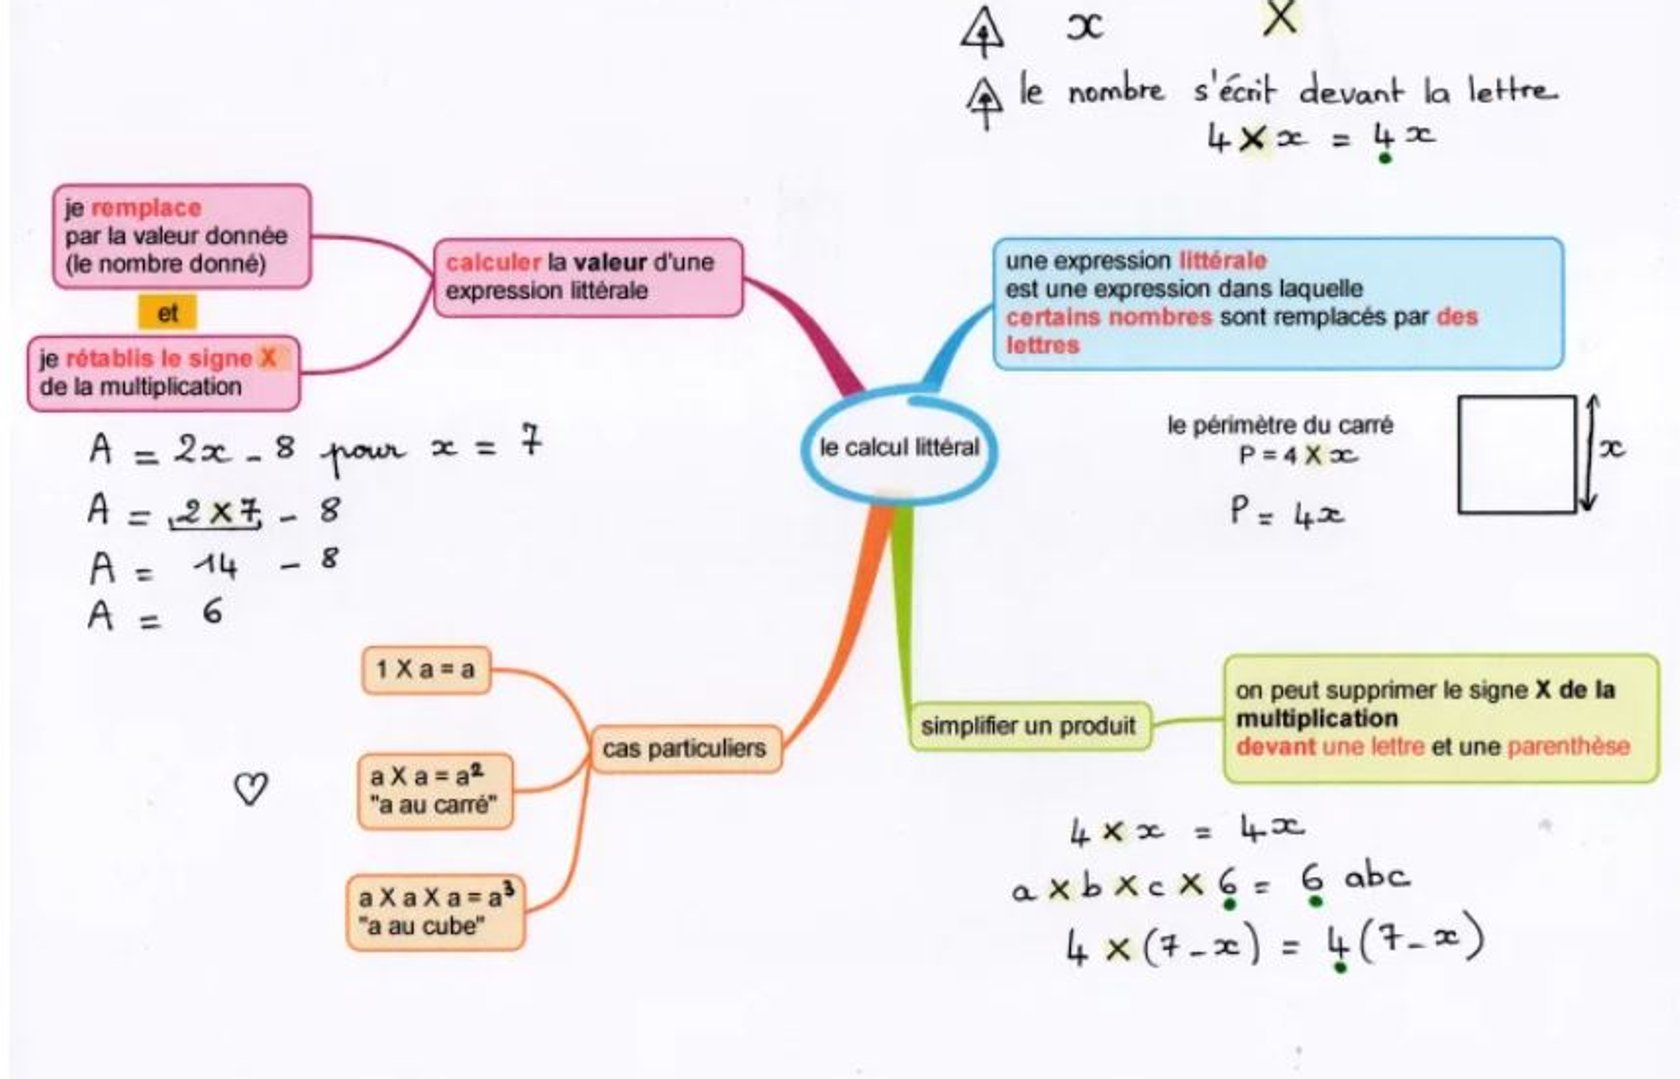 x X
le nombre s'écrit devant la lettre
4 X x = 4x
je remplace
par la valeur donnée
(le nombre donné)
et
je rétablis le signe X
de la multiplication
calculer la valeur d'une
expression littérale
une expression littérale
est une expression dans laquelle
certains nombres sont remplacés par des
lettres
le calcul littéral
A = 2x - 8 pour x = 7
A = 2 x 7 - 8
A = 14 - 8
A = 6
le périmètre du carré
P = 4 X x
P = 4x
x
1 X a = a
cas particuliers
a X a = a²
"a au carré"
a X a X a = a³
"a au cube"
simplifier un produit
on peut supprimer le signe X de la
multiplication
devant une lettre et une parenthèse
4 x x = 4x
a x b x c x 6 = 6 abc
4 x (7 - x) = 4(7 - x)